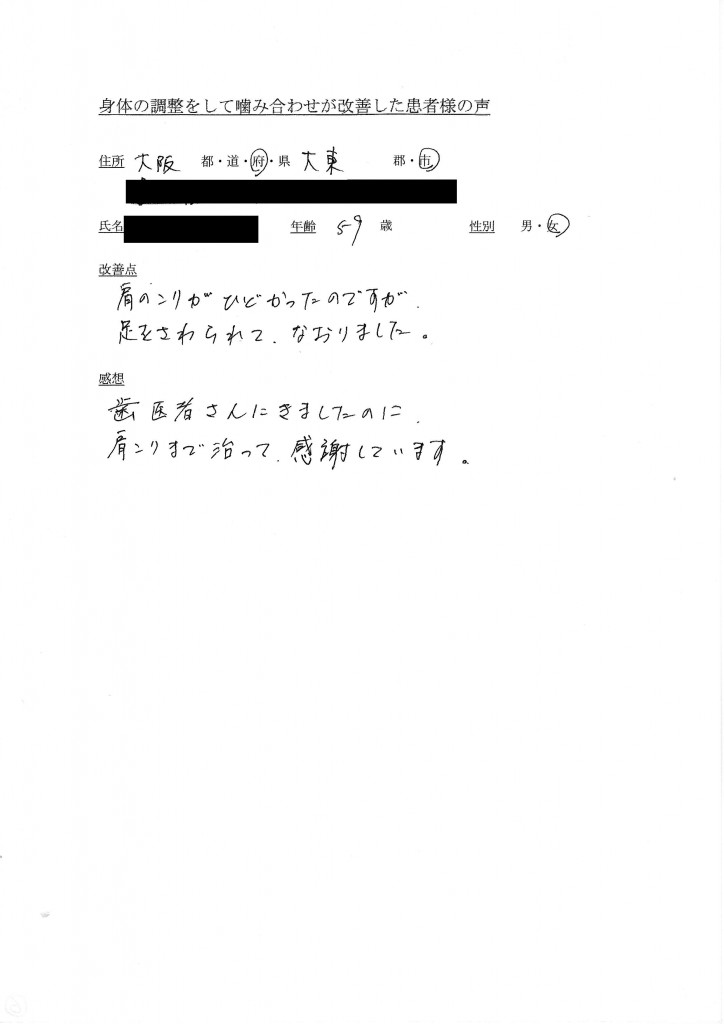 身体の調整をして噛み合わせが改善した患者様の声
住所 大阪 都・道・府・県 大東 郡・市
氏名 年齢 59 歳 性別 男・女
改善点
肩のコリがひどかったのですが、
足をさわられて、なおりました。
感想
歯医者さんにきましたのに、
肩こりまで治って、感謝しています。